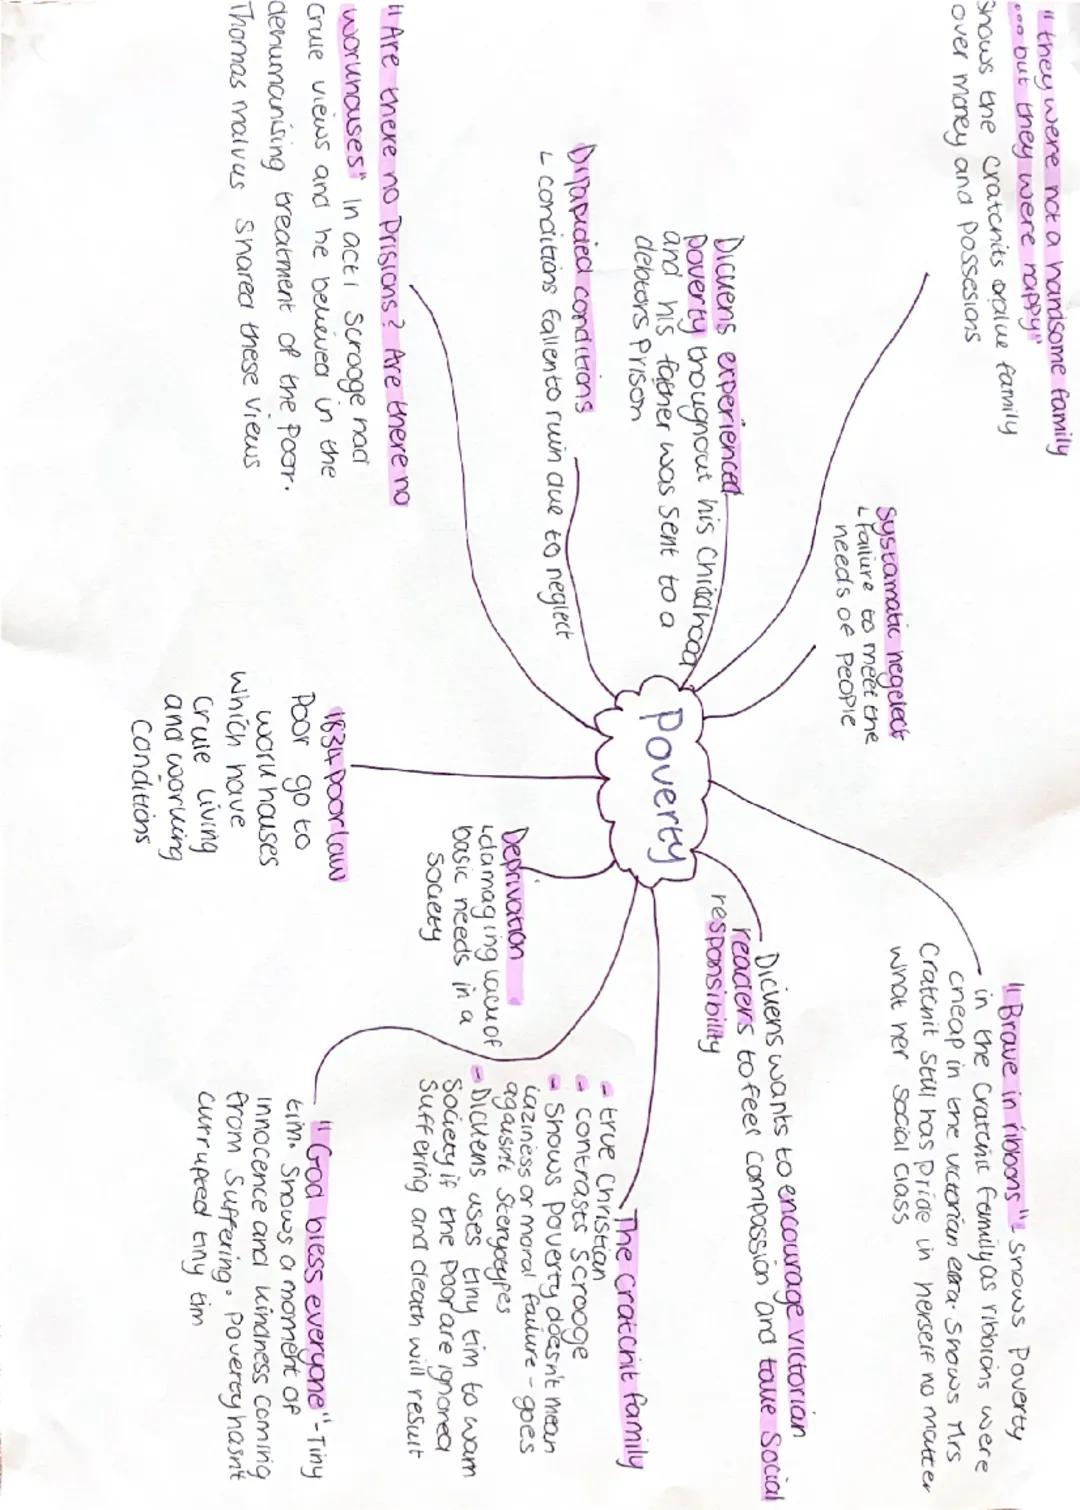 "they were not a handsome family
...but they were happy"
Shows the cratchits value family
over money and possesions
Systamatic negelect
↳ failure to meet the
needs of people
"Brave in ribbons" - Shows Poverty
in the Cratchit family as ribbions were
cheap in the victorian era. Shows Mrs
Cratchit still has Pride in herself no matter
what her social class
Dickens experienced
poverty throughout his childhood
and his father was sent to a
debtors prison
Dilapidated conditions
↳ conditions fallen to ruin due to neglect
Poverty
Dickens wants to encourage victorian
readers to feel compassion and take social
responsibility
The cratchit family
- true christian
- contrasts Scrooge
- Shows poverty doesn't mean
laziness or moral failure - goes
against steryotypes
- Dickens uses tiny tim to warn
Society if the poor are ignored
suffering and death will result
"Are there no Prisions? Are there no
workhouses" In act 1 scrooge had
crule views and he believed in the
dehumanising treatment of the poor.
Thomas malvus shared these views
1834 poor law
Poor go to
work houses
which have
crule living
and working
conditions
Deprivation
↳ damaging lack of
basic needs in a
Society
"God bless everyone" - Tiny
tim. Shows a moment of
innocence and kindness coming
from suffering. Poverty hasn't
currupted tiny tim